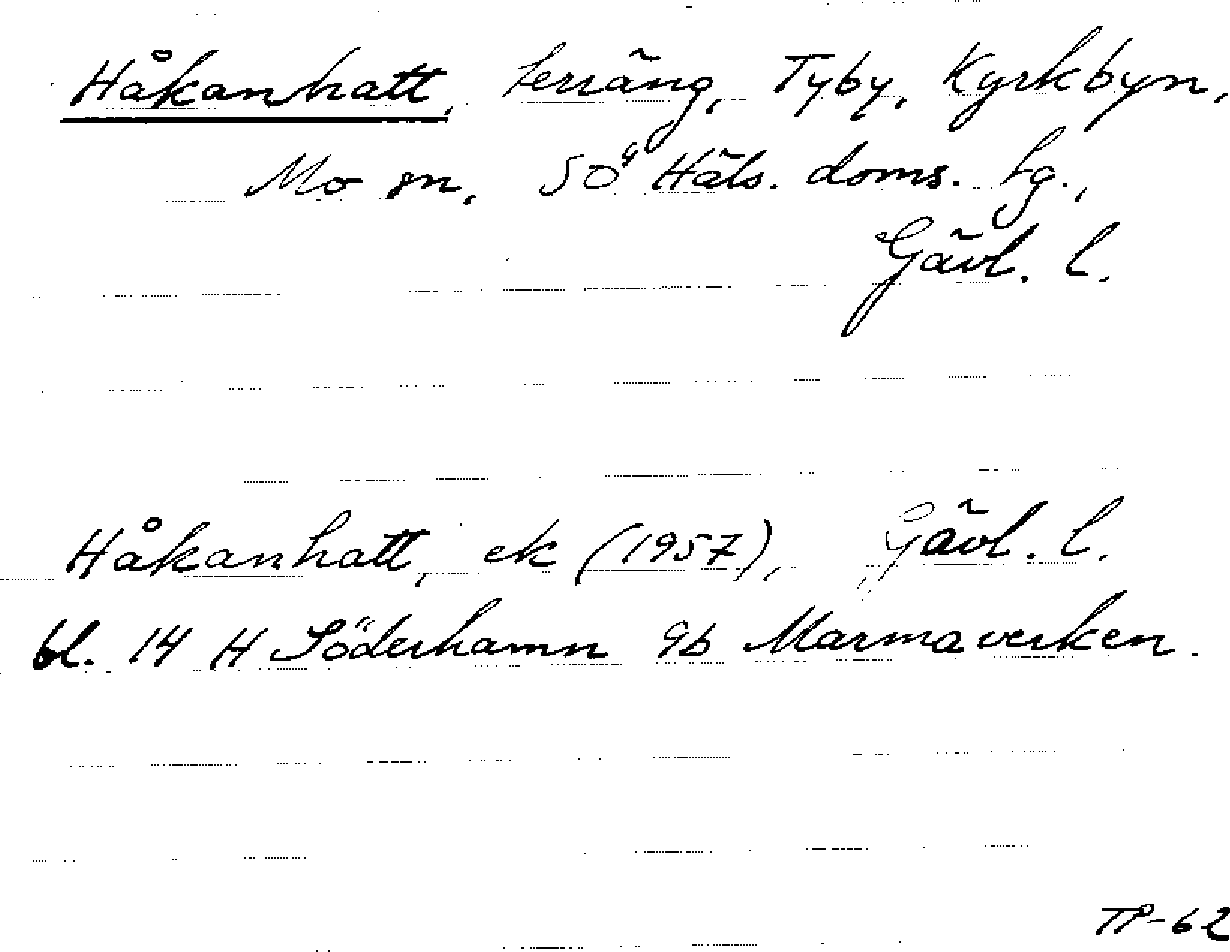 Håkanhatt, terräng, Tyby, Kyrkbyn,
Mo sn, SÖ Häls. doms. hg.,
Gävl. l.
Håkanhatt, ek (1957), Gävl. l.
bl. 14 H Söderhamn 9b Marmaverken.
TP-62